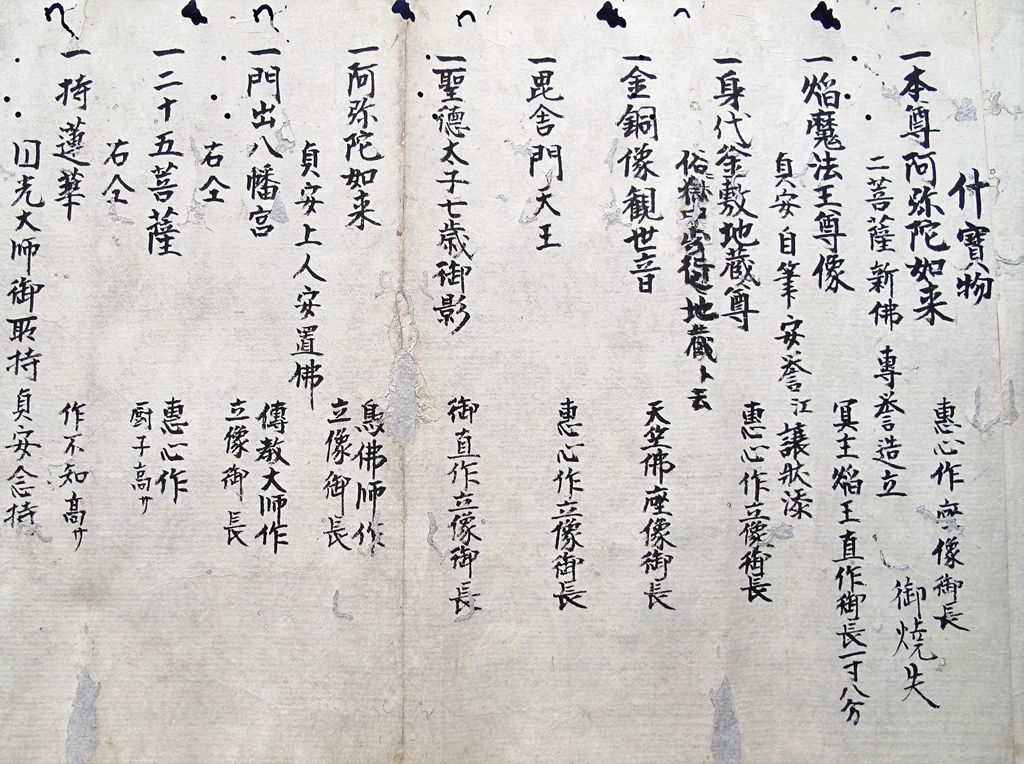 什寳物
一本尊阿弥陀如来
惠心作座像御長
二菩薩新佛 專誉造立
御焼失
一焔魔法王尊像
冥土焔王直作御長一寸八分
貞安自筆安誉江譲狀添
一身代釜敷地蔵尊
惠心作立像御長
地蔵ト云
一金銅像観世音
天竺佛座像御長
一毘舎門天王
惠心作立像御長
一聖德太子七歳御影
御直作立像御長
一阿弥陀如来
鳥佛師作
立像御長
貞安上人安置佛
一門出八幡宮
傳教大師作
立像御長
右仝
一二十五菩薩
惠心作
厨子高サ
右仝
一持蓮華
作不知高サ
円光大師御所持貞安念持